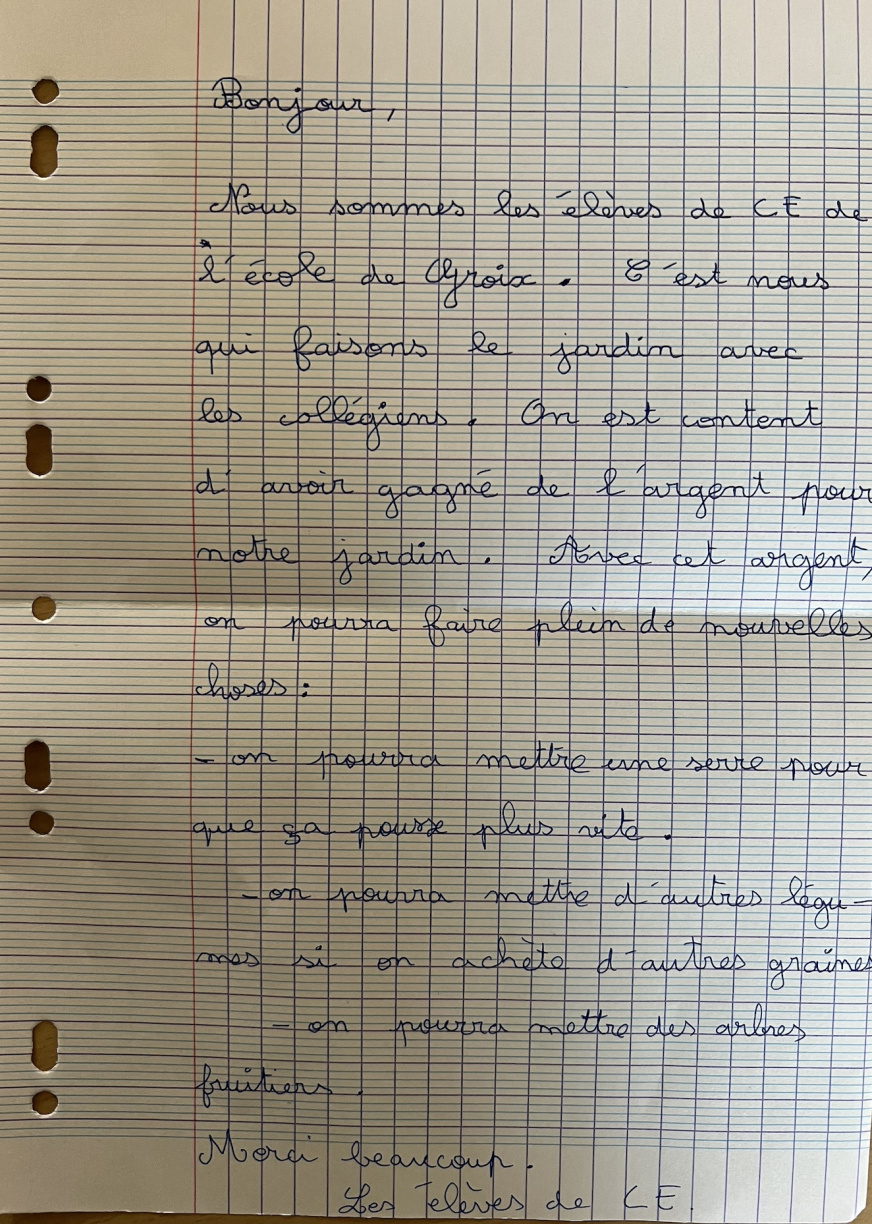 Bonjour,
Nous sommes les élèves de CE de
l'école de Groix. C'est nous
qui faisons le jardin avec
les collégiens. On est content
d'avoir gagné de l'argent pour
notre jardin. Avec cet argent,
on pourra faire plein de nouvelles
choses :
- on pourra mettre une serre pour
que ça pousse plus vite.
- on pourra mettre d'autres légu-
mes si on achète d'autres graines
- on pourra mettre des arbres
fruitiers.
Merci beaucoup.
Les élèves de CE.